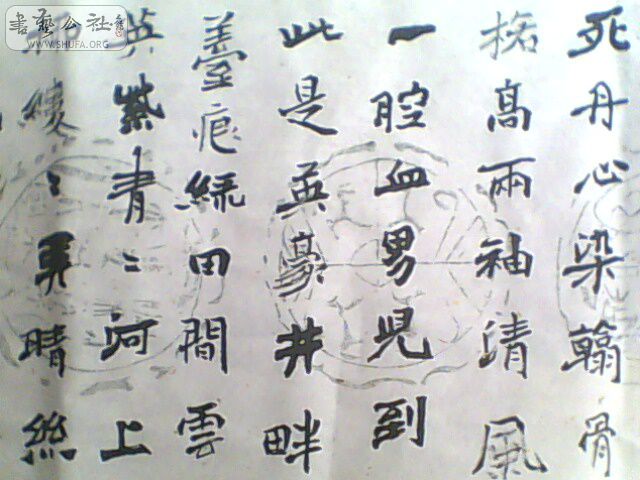 死丹心染翰骨
格高兩袖清風
一腔血男兒到
此是英豪井畔
薹痕綠田間雲
英紫青：河上
柳縷：弄晴絲
書藝公社
WWW.SHUFA.ORG